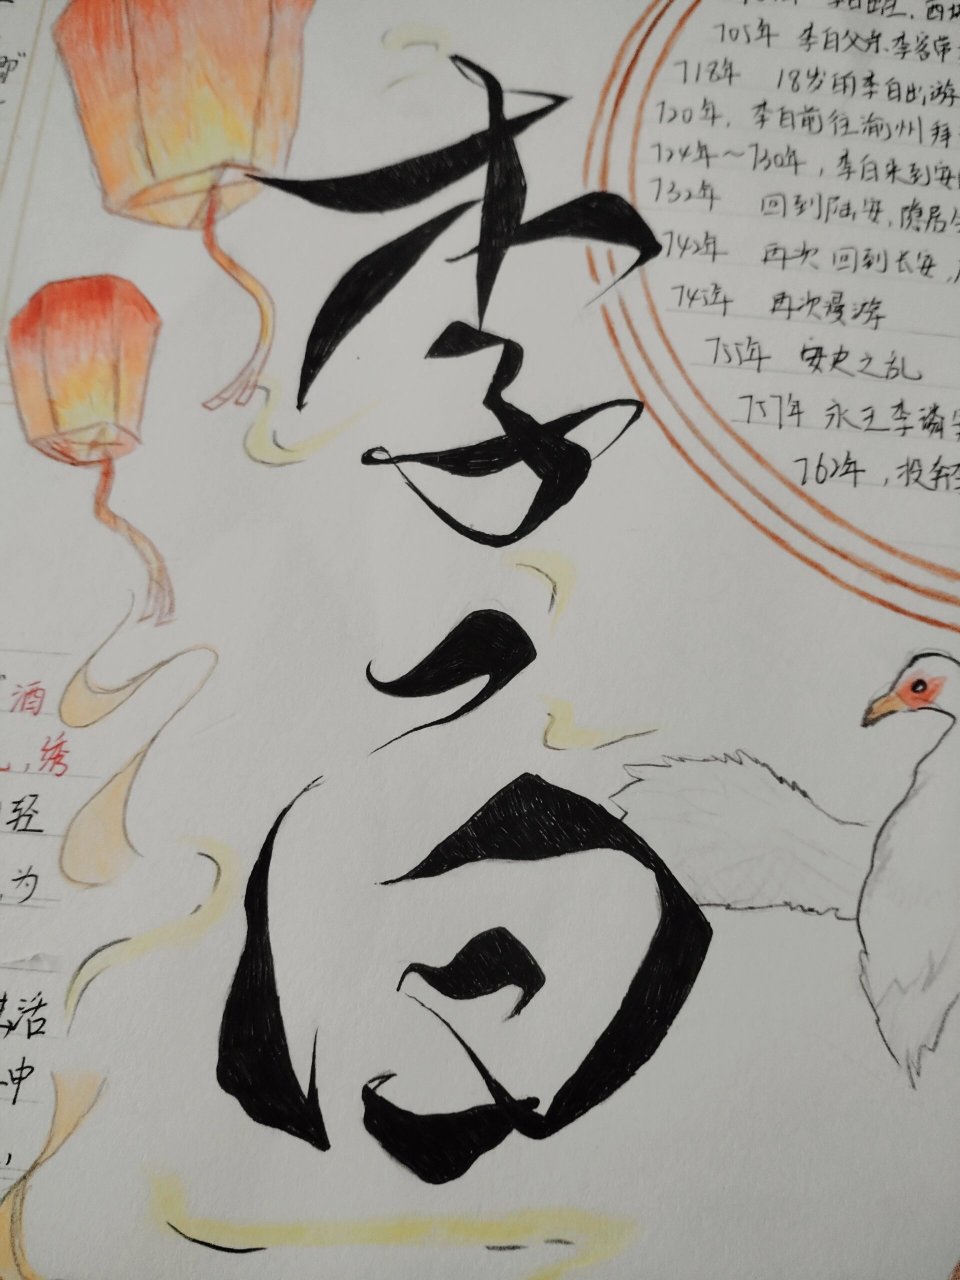 李白
705年 李白父亲李客带
718年 18岁的李白出游
720年，李白前往渝州拜
724年～730年，李白来到安
732年 回到陆安，隐居
742年 再次回到长安，
745年 再次漫游
755年 安史之乱
757年 永王李璘
762年，投奔
酒
，绣
轻
，为
活
申